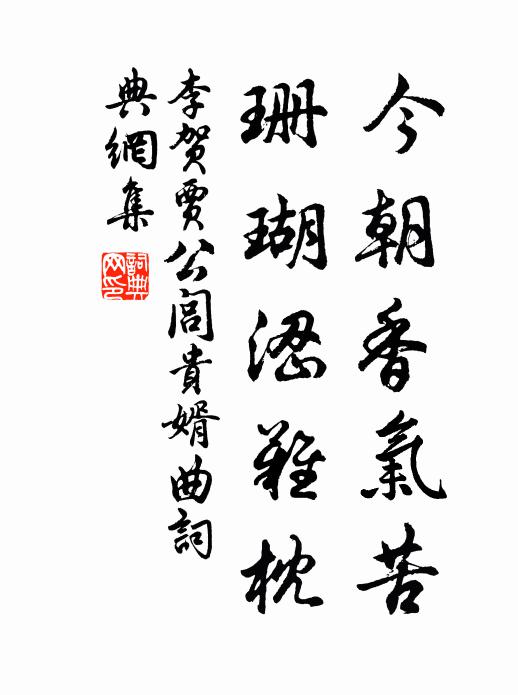 今朝香氣苦
珊瑚澀難枕
李賀賈公閭貴婿曲詞
典網集
詞典網印